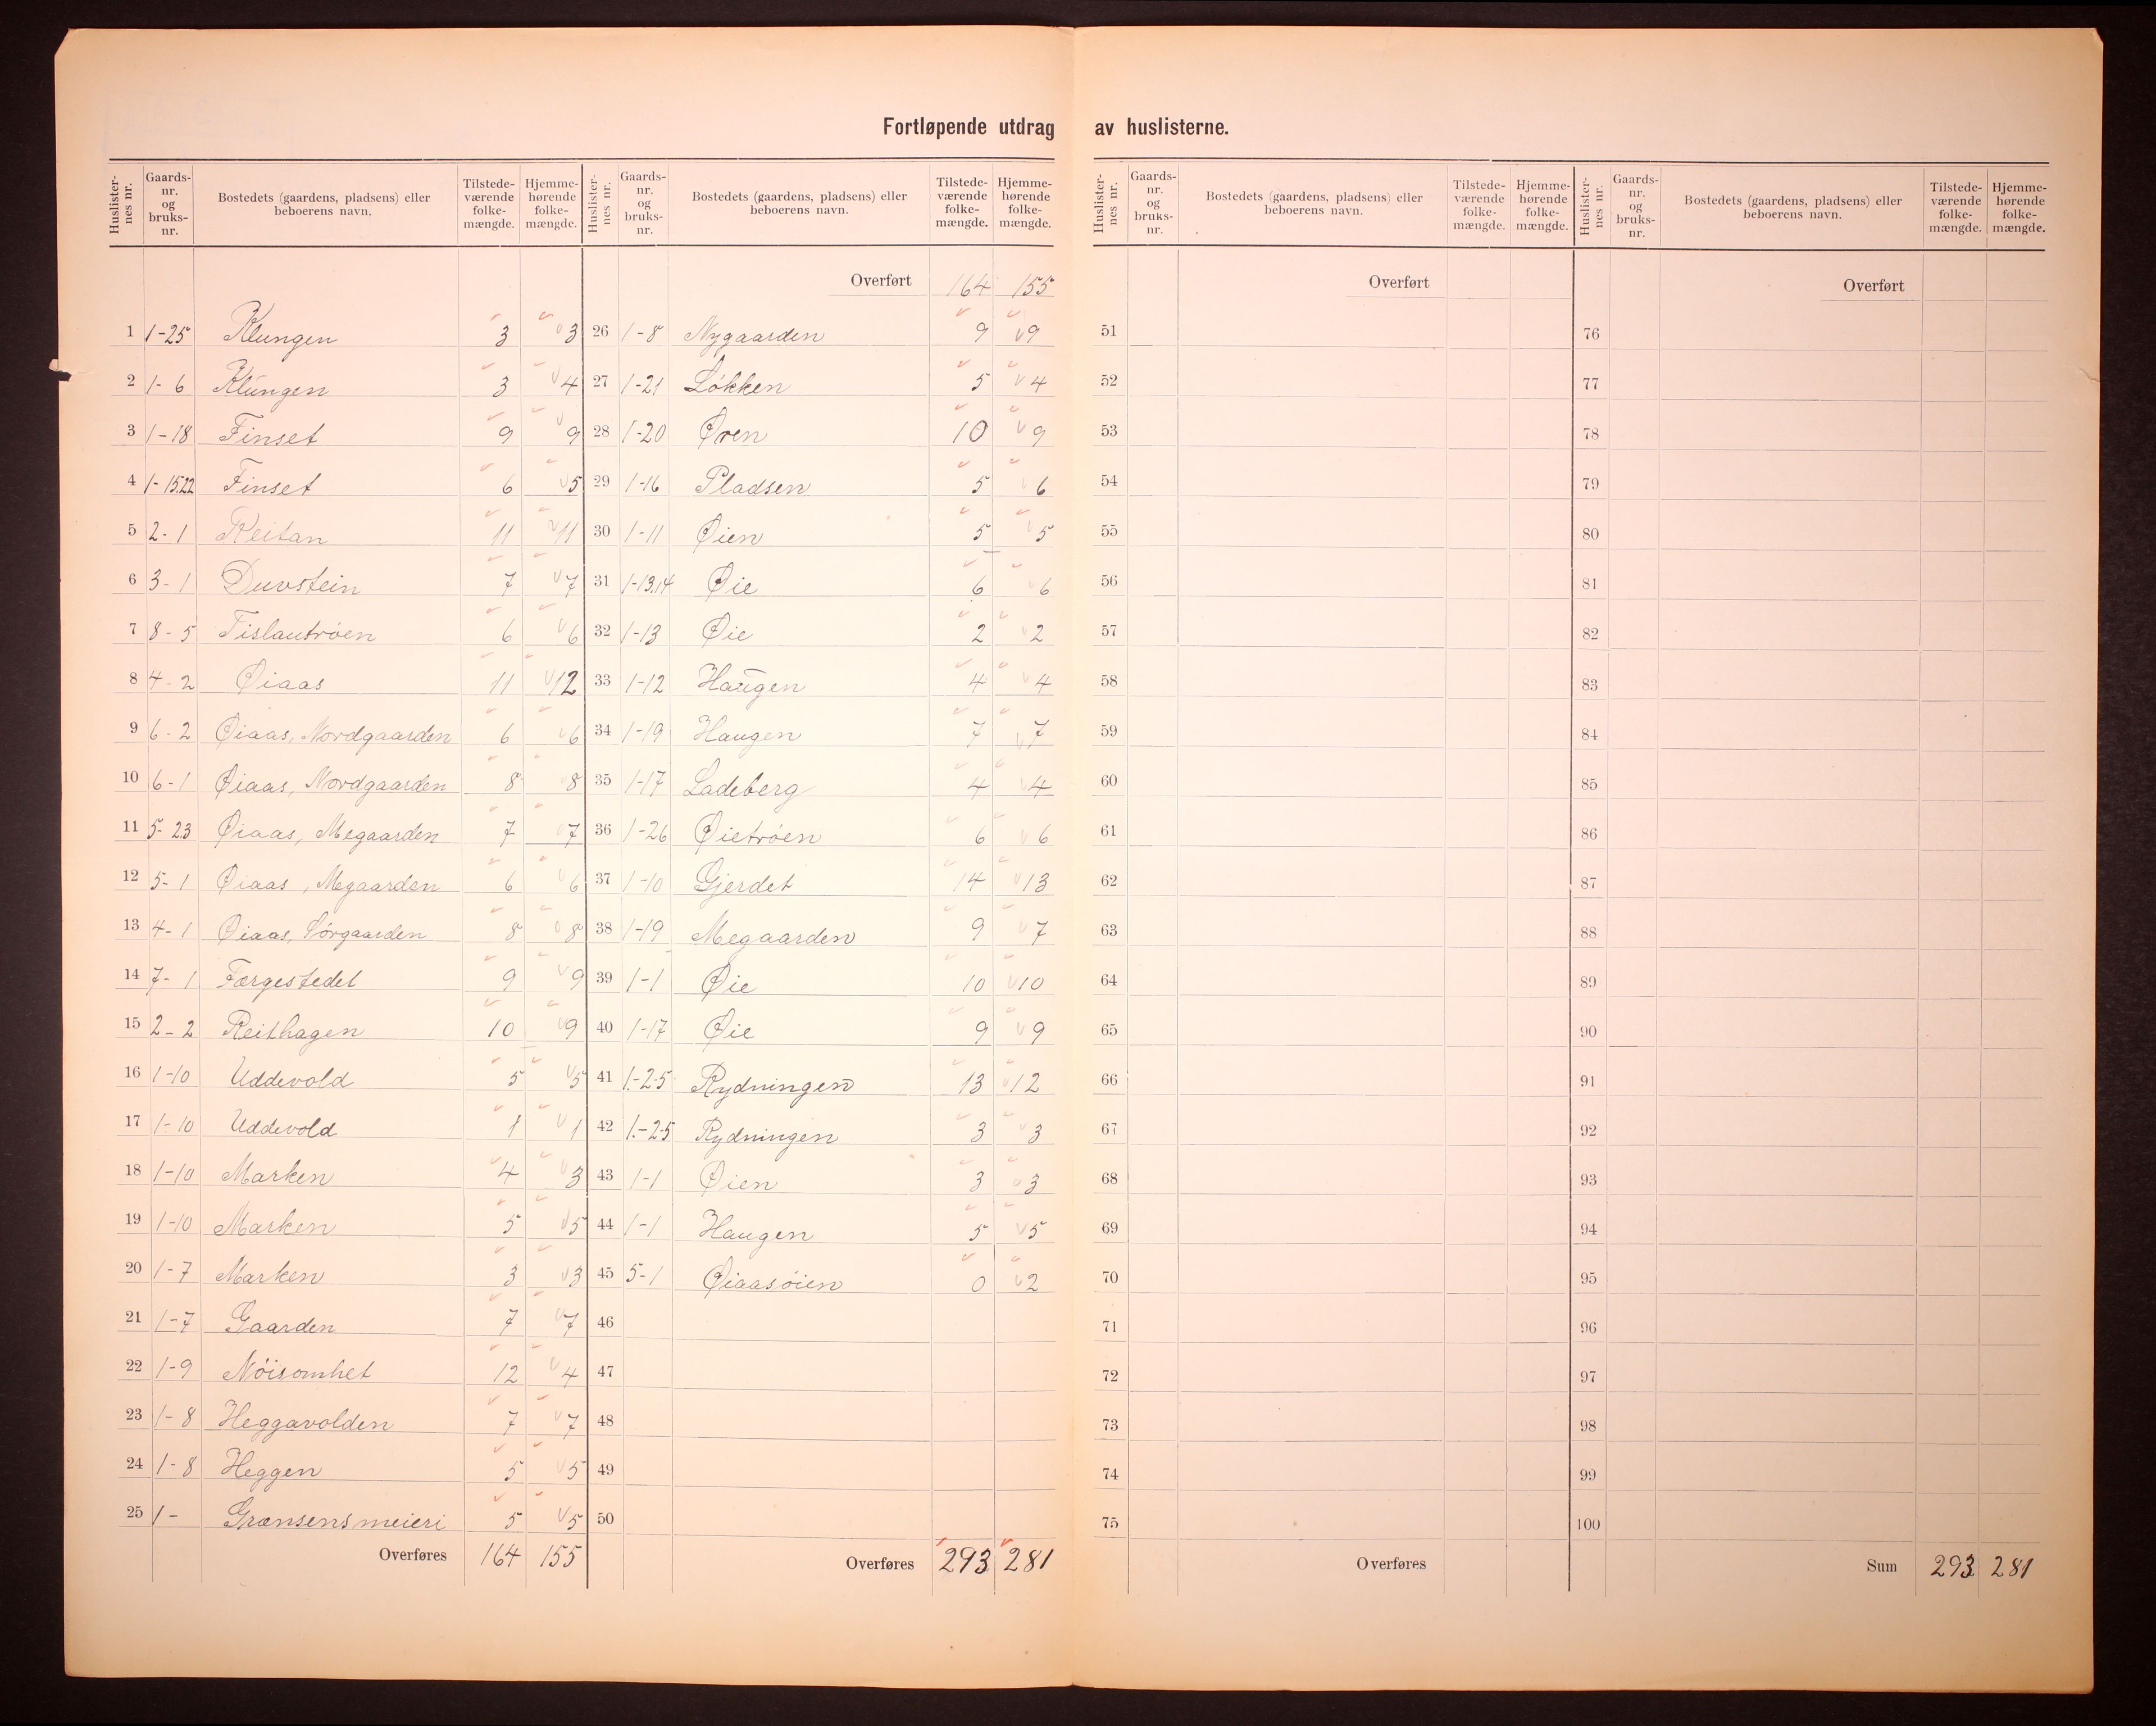 Fortløpende utdrag av huslisterne.
Huslisternes nr. Gaards-nr. og bruks-nr. Bostedets (gaardens, pladsens) eller beboerens navn. Tilstedeværende folkemængde. Hjemmehørende folkemængde.
1 1-25 Klungen 3 3
2 1-6 Klungen 3 4
3 1-18 Finset 9 9
4 1-15.22 Finset 6 5
5 2-1 Reitan 11 11
6 3-1 Duvstein 7 7
7 8-5 Tislautrøen 6 6
8 4-2 Øiaas 11 12
9 6-2 Øiaas, Nordgaarden 6 6
10 6-1 Øiaas, Nordgaarden 8 8
11 5-23 Øiaas, Megaarden 7 7
12 5-1 Øiaas, Megaarden 6 6
13 4-1 Øiaas, Sørgaarden 8 8
14 7-1 Færgestedet 9 9
15 2-2 Reithagen 10 9
16 1-10 Uddevold 5 5
17 1-10 Uddevold 1 1
18 1-10 Marken 4 3
19 1-10 Marken 5 5
20 1-7 Marken 3 3
21 1-7 Gaarden 7 7
22 1-9 Nöisomhet 12 4
23 1-8 Heggavolden 7 7
24 1-8 Heggen 5 5
25 1- Grænsens meieri 5 5
Overføres 164 155
Huslisternes nr. Gaards-nr. og bruks-nr. Bostedets (gaardens, pladsens) eller beboerens navn. Tilstedeværende folkemængde. Hjemmehørende folkemængde.
Overført 164 155
26 1-8 Nygaarden 9 9
27 1-21 Løkken 5 4
28 1-20 Øren 10 9
29 1-16 Pladsen 5 6
30 1-11 Øien 5 5
31 1-13.14 Øie 6 6
32 1-13 Øie 2 2
33 1-12 Haugen 4 4
34 1-19 Haugen 7 7
35 1-17 Ladeberg 4 4
36 1-26 Øietrøen 6 6
37 1-10 Gjerdet 14 13
38 1-19 Megaarden 9 7
39 1-1 Øie 10 10
40 1-17 Øie 9 9
41 1.-2-5 Rydningen 13 12
42 1.-2-5 Rydningen 3 3
43 1-1 Øien 3 3
44 1-1 Haugen 5 5
45 5-1 Øiaasöien 0 2
46
47
48
49
50
Overføres 293 281
Huslisternes nr. Gaards-nr. og bruks-nr. Bostedets (gaardens, pladsens) eller beboerens navn. Tilstedeværende folkemængde. Hjemmehørende folkemængde.
Overført
51
52
53
54
55
56
57
58
59
60
61
62
63
64
65
66
67
68
69
70
71
72
73
74
75
Overføres
Huslisternes nr. Gaards-nr. og bruks-nr. Bostedets (gaardens, pladsens) eller beboerens navn. Tilstedeværende folkemængde. Hjemmehørende folkemængde.
Overført
76
77
78
79
80
81
82
83
84
85
86
87
88
89
90
91
92
93
94
95
96
97
98
99
100
Sum 293 281